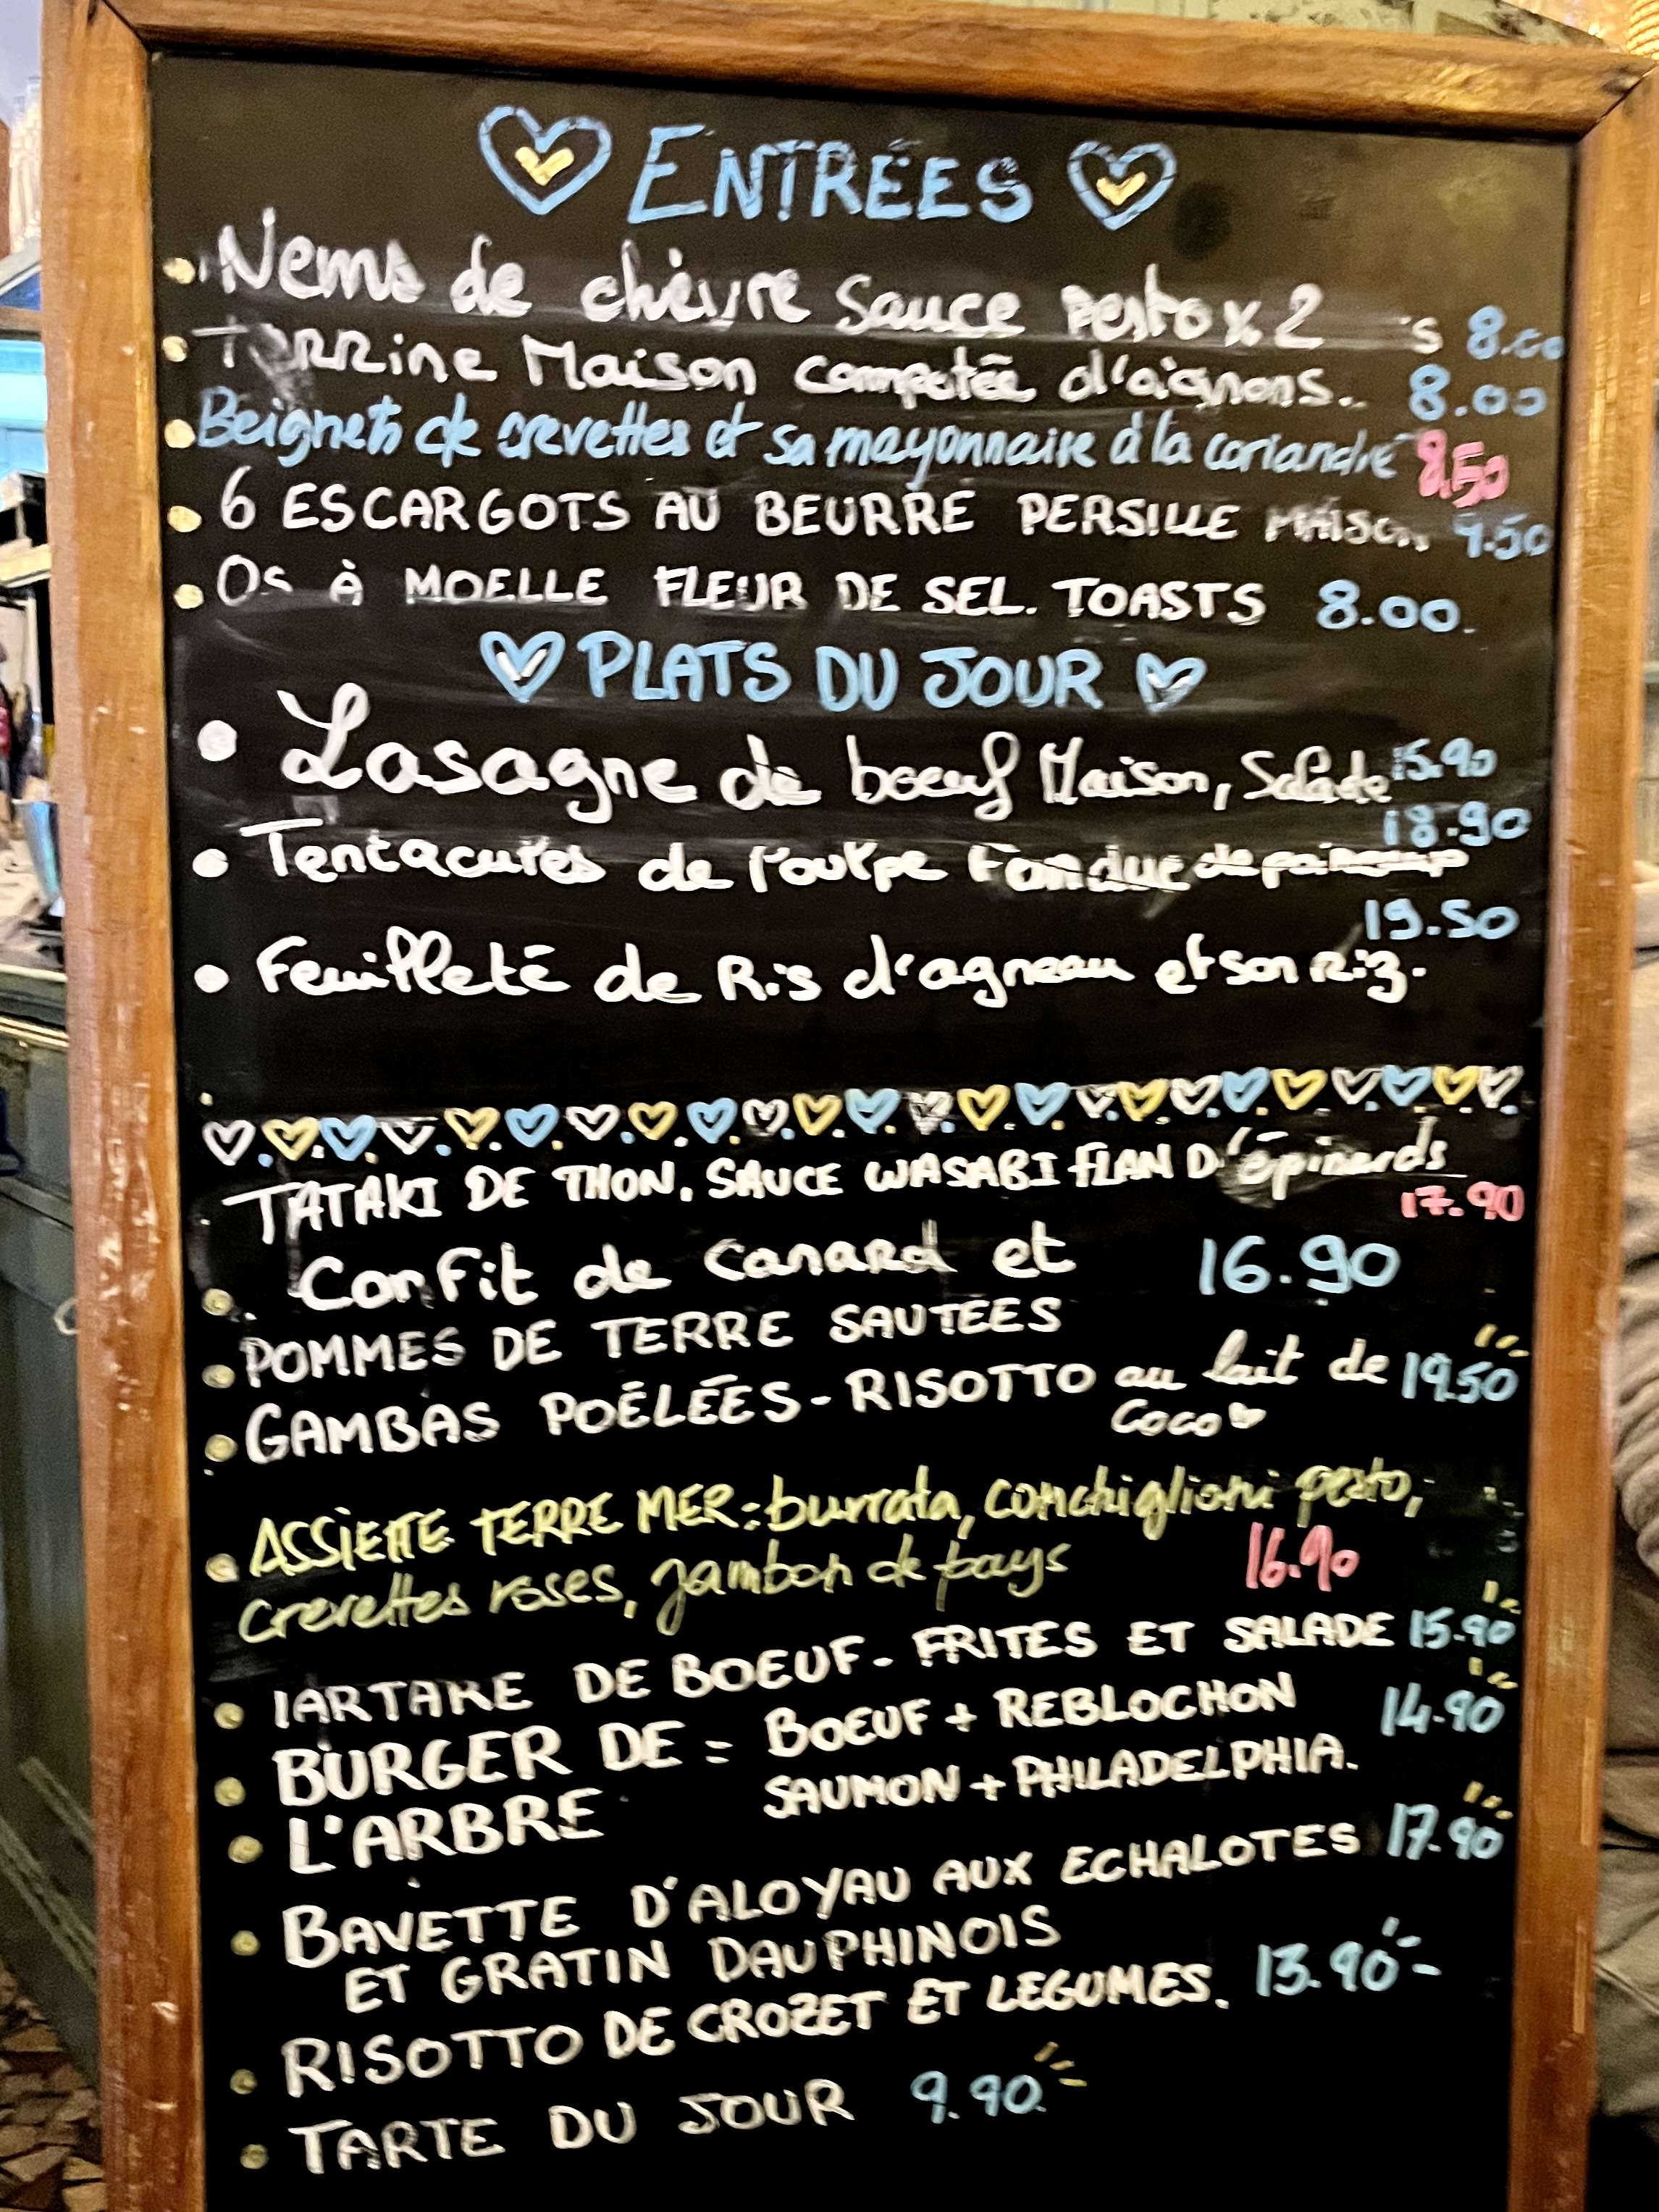 ENTRÉES
Nems de chèvre Sauce Pesto x 2 s 8.00
Terrine Maison compotée d'oignons.. 8.00
Beignets de crevettes et sa mayonnaise à la coriandre 8.50
6 ESCARGOTS AU BEURRE PERSILLE MAISON 9.50
OS À MOELLE FLEUR DE SEL. TOASTS 8.00.
PLATS DU JOUR
Lasagne de boeuf Maison, Salade 15.90
18.90
Tentacules de Poulpe Fondue de poireaux
19.50
Feuilleté de Ris d'agneau et son Riz.
TATAKI DE THON. SAUCE WASABI FLAN D'épinards
17.90
Confit de Canard et 16.90
POMMES DE TERRE SAUTEES
GAMBAS POÊLÉES - RISOTTO au lait de 19.50
Coco
ASSIETTE TERRE MER: burrata, conchiglioni pesto,
crevettes roses, jambon de pays 16.90
TARTARE DE BOEUF - FRITES ET SALADE 15.90
BURGER DE = BOEUF + REBLOCHON 14.90
L'ARBRE SAUMON + PHILADELPHIA.
BAVETTE D'ALOYAU AUX ECHALOTES 17.90
ET GRATIN DAUPHINOIS
RISOTTO DE CROZET ET LEGUMES. 13.90
TARTE DU JOUR 9.90